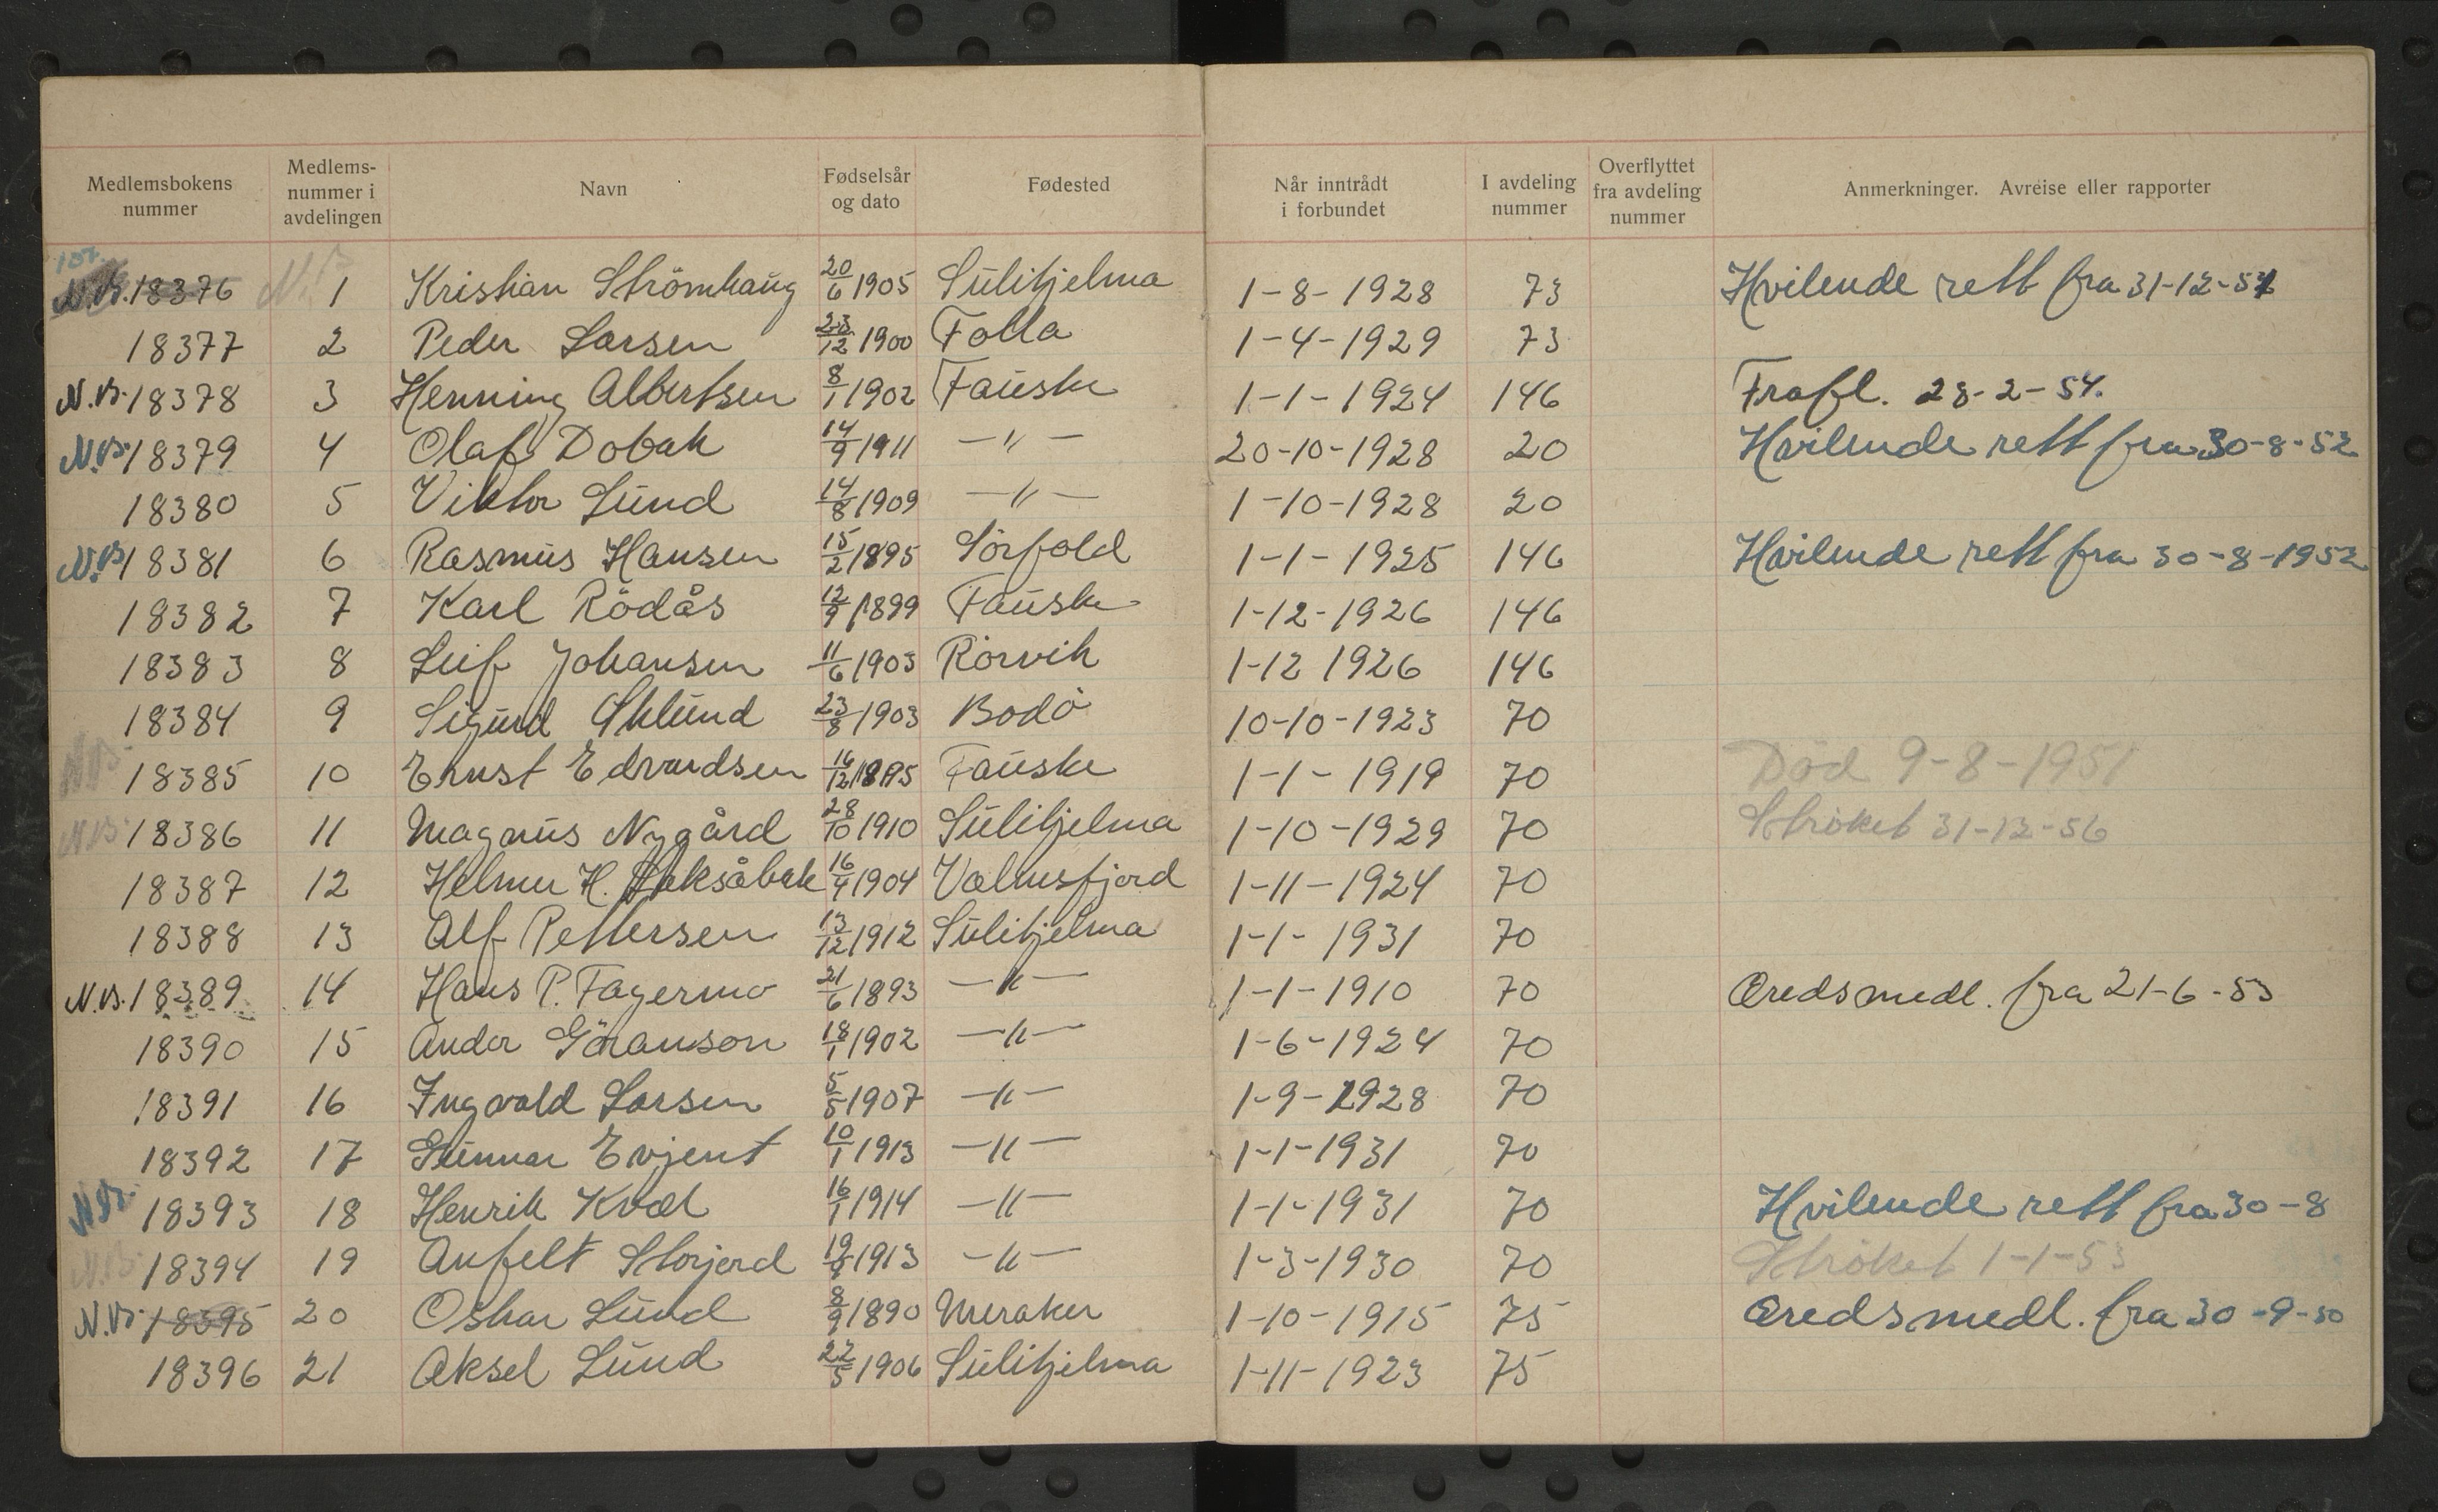 Medlemsbokens nummer | Medlems-nummer i avdelingen | Navn | Fødselsår og dato | Fødested | Når inntrådt i forbundet | I avdeling nummer | Overflyttet fra avdeling nummer | Anmerkninger. Avreise eller rapporter
N.B. 18376 N.B 1 Kristian Strömhaug 20/6 1905 Sulitjelma 1-8-1928 73 Hvilende rett fra 31-12-51
18377 2 Peder Larsen 23/12 1900 Folla 1-4-1929 73
N.B. 18378 3 Henning Albertsen 8/1 1902 Fauske 1-1-1924 146 Frafl. 28-2-54.
N.B. 18379 4 Olaf Dobak 14/9 1911 —〃— 20-10-1928 20 Hvilende rett fra 30-8-52
18380 5 Viktor Lund 14/8 1909 —〃— 1-10-1928 20
N.B. 18381 6 Rasmus Hansen 15/2 1895 Sörfold 1-1-1925 146 Hvilende rett fra 30-8-1952
18382 7 Karl Rödås 12/9 1899 Fauske 1-12-1926 146
18383 8 Leif Johansen 11/6 1903 Rörvik 1-12 1926 146
18384 9 Sigurd Sklund 23/8 1903 Bodö 10-10-1923 70
NB 18385 10 Ernst Edvardsen 16/12 1895 Fauske 1-1-1919 70 Död 9-8-1951
NB 18386 11 Magnus Nygård 28/10 1910 Sulitjelma 1-10-1929 70 Ströket 31-12-56
18387 12 Helmer H. 16/4 1904 Valnesfjord 1-11-1924 70
18388 13 Alf Pettersen 13/12 1912 Sulitjelma 1-1-1931 70
N.B. 18389 14 Hans P. Fagermo 21/6 1893 —〃— 1-1-1910 70 Æredsmedl. fra 21-6-53
18390 15 Ander Göranson 18/1 1902 —〃— 1-6-1924 70
18391 16 Ingvald Larsen 5/5 1907 —〃— 1-9-1928 70
18392 17 Gunnar Evjent 10/1 1913 —〃— 1-1-1931 70
NB. 18393 18 Henrik Kvæl 16/1 1914 —〃— 1-1-1931 70 Hvilende rett fra 30-8
N.B. 18394 19 Anfelt Storjord 19/9 1913 —〃— 1-3-1930 70 Ströket 1-1-53
N.B. 18395 20 Oskar Lund 8/9 1890 Meraker 1-10-1915 75 Æredsmedl. fra 30-9-50
18396 21 Aksel Lund 22/5 1906 Sulitjelma 1-11-1923 75